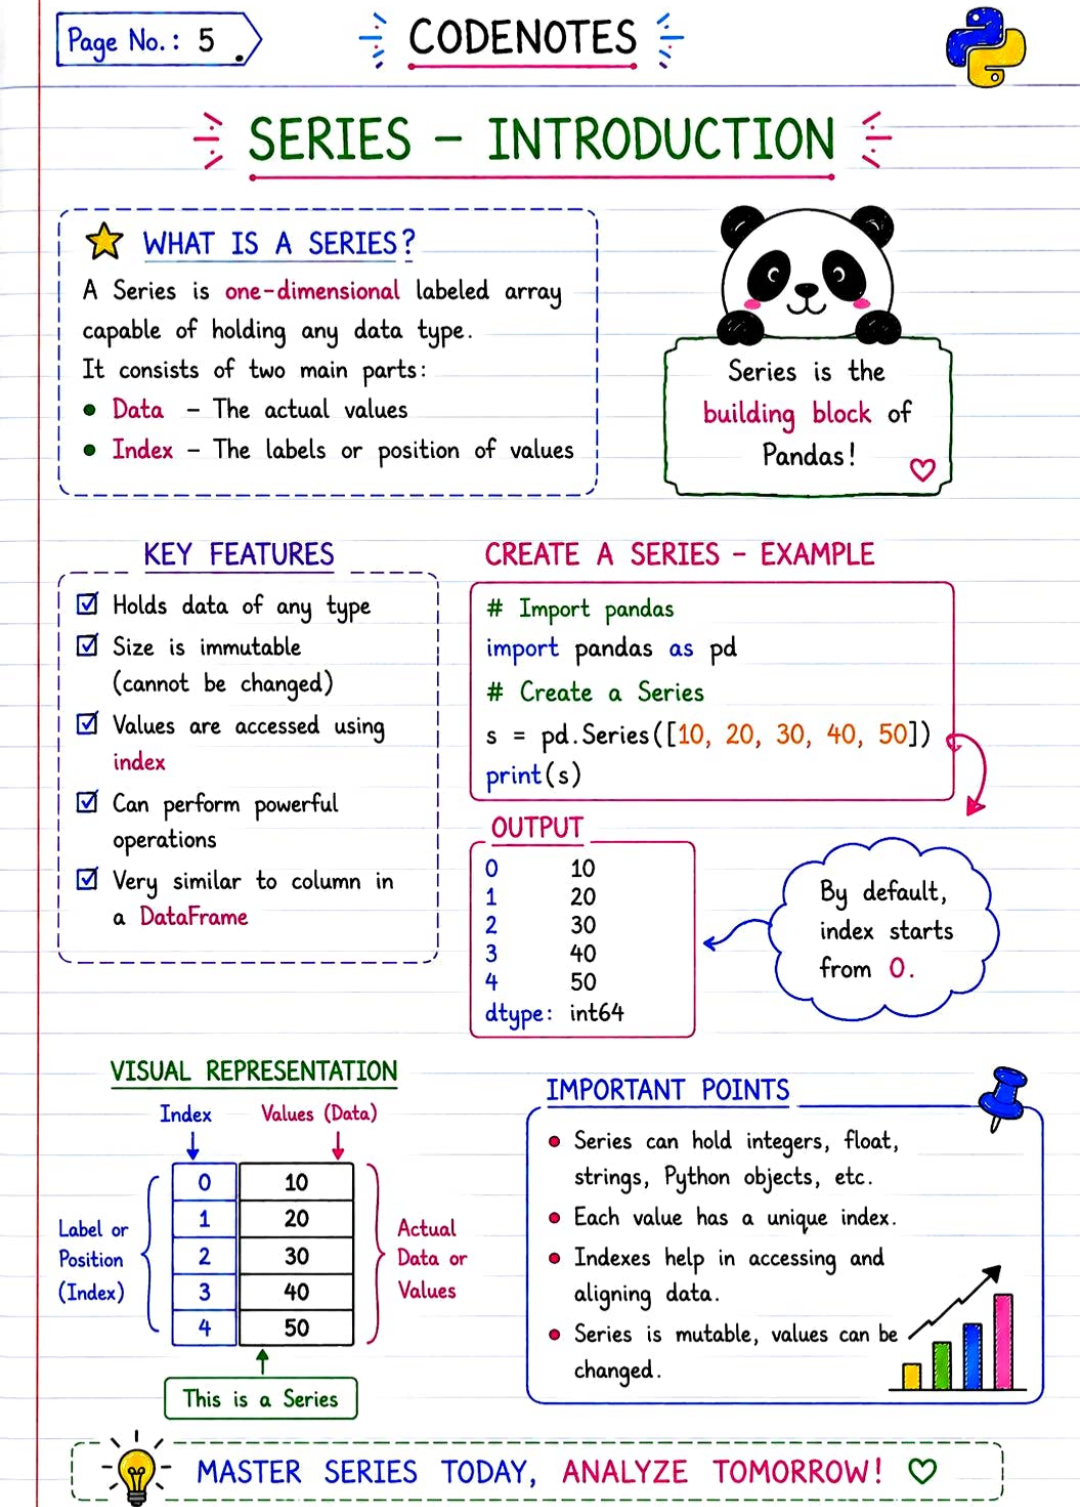 Page No.: 5
CODENOTES
SERIES - INTRODUCTION
WHAT IS A SERIES?
A Series is one-dimensional labeled array
capable of holding any data type.
It consists of two main parts:
• Data - The actual values
• Index - The labels or position of values
Series is the
building block of
Pandas!
KEY FEATURES
Holds data of any type
Size is immutable
(cannot be changed)
Values are accessed using
index
Can perform powerful
operations
Very similar to column in
a DataFrame
CREATE A SERIES - EXAMPLE
# Import pandas
import pandas as pd
# Create a Series
s = pd.Series([10, 20, 30, 40, 50])
print(s)
OUTPUT
0 10
1 20
2 30
3 40
4 50
dtype: int64
By default,
index starts
from 0.
VISUAL REPRESENTATION
Index Values (Data)
Label or
Position
(Index)
0 10
1 20
2 30
3 40
4 50
Actual
Data or
Values
This is a Series
IMPORTANT POINTS
• Series can hold integers, float,
strings, Python objects, etc.
• Each value has a unique index.
• Indexes help in accessing and
aligning data.
• Series is mutable, values can be
changed.
MASTER SERIES TODAY, ANALYZE TOMORROW!